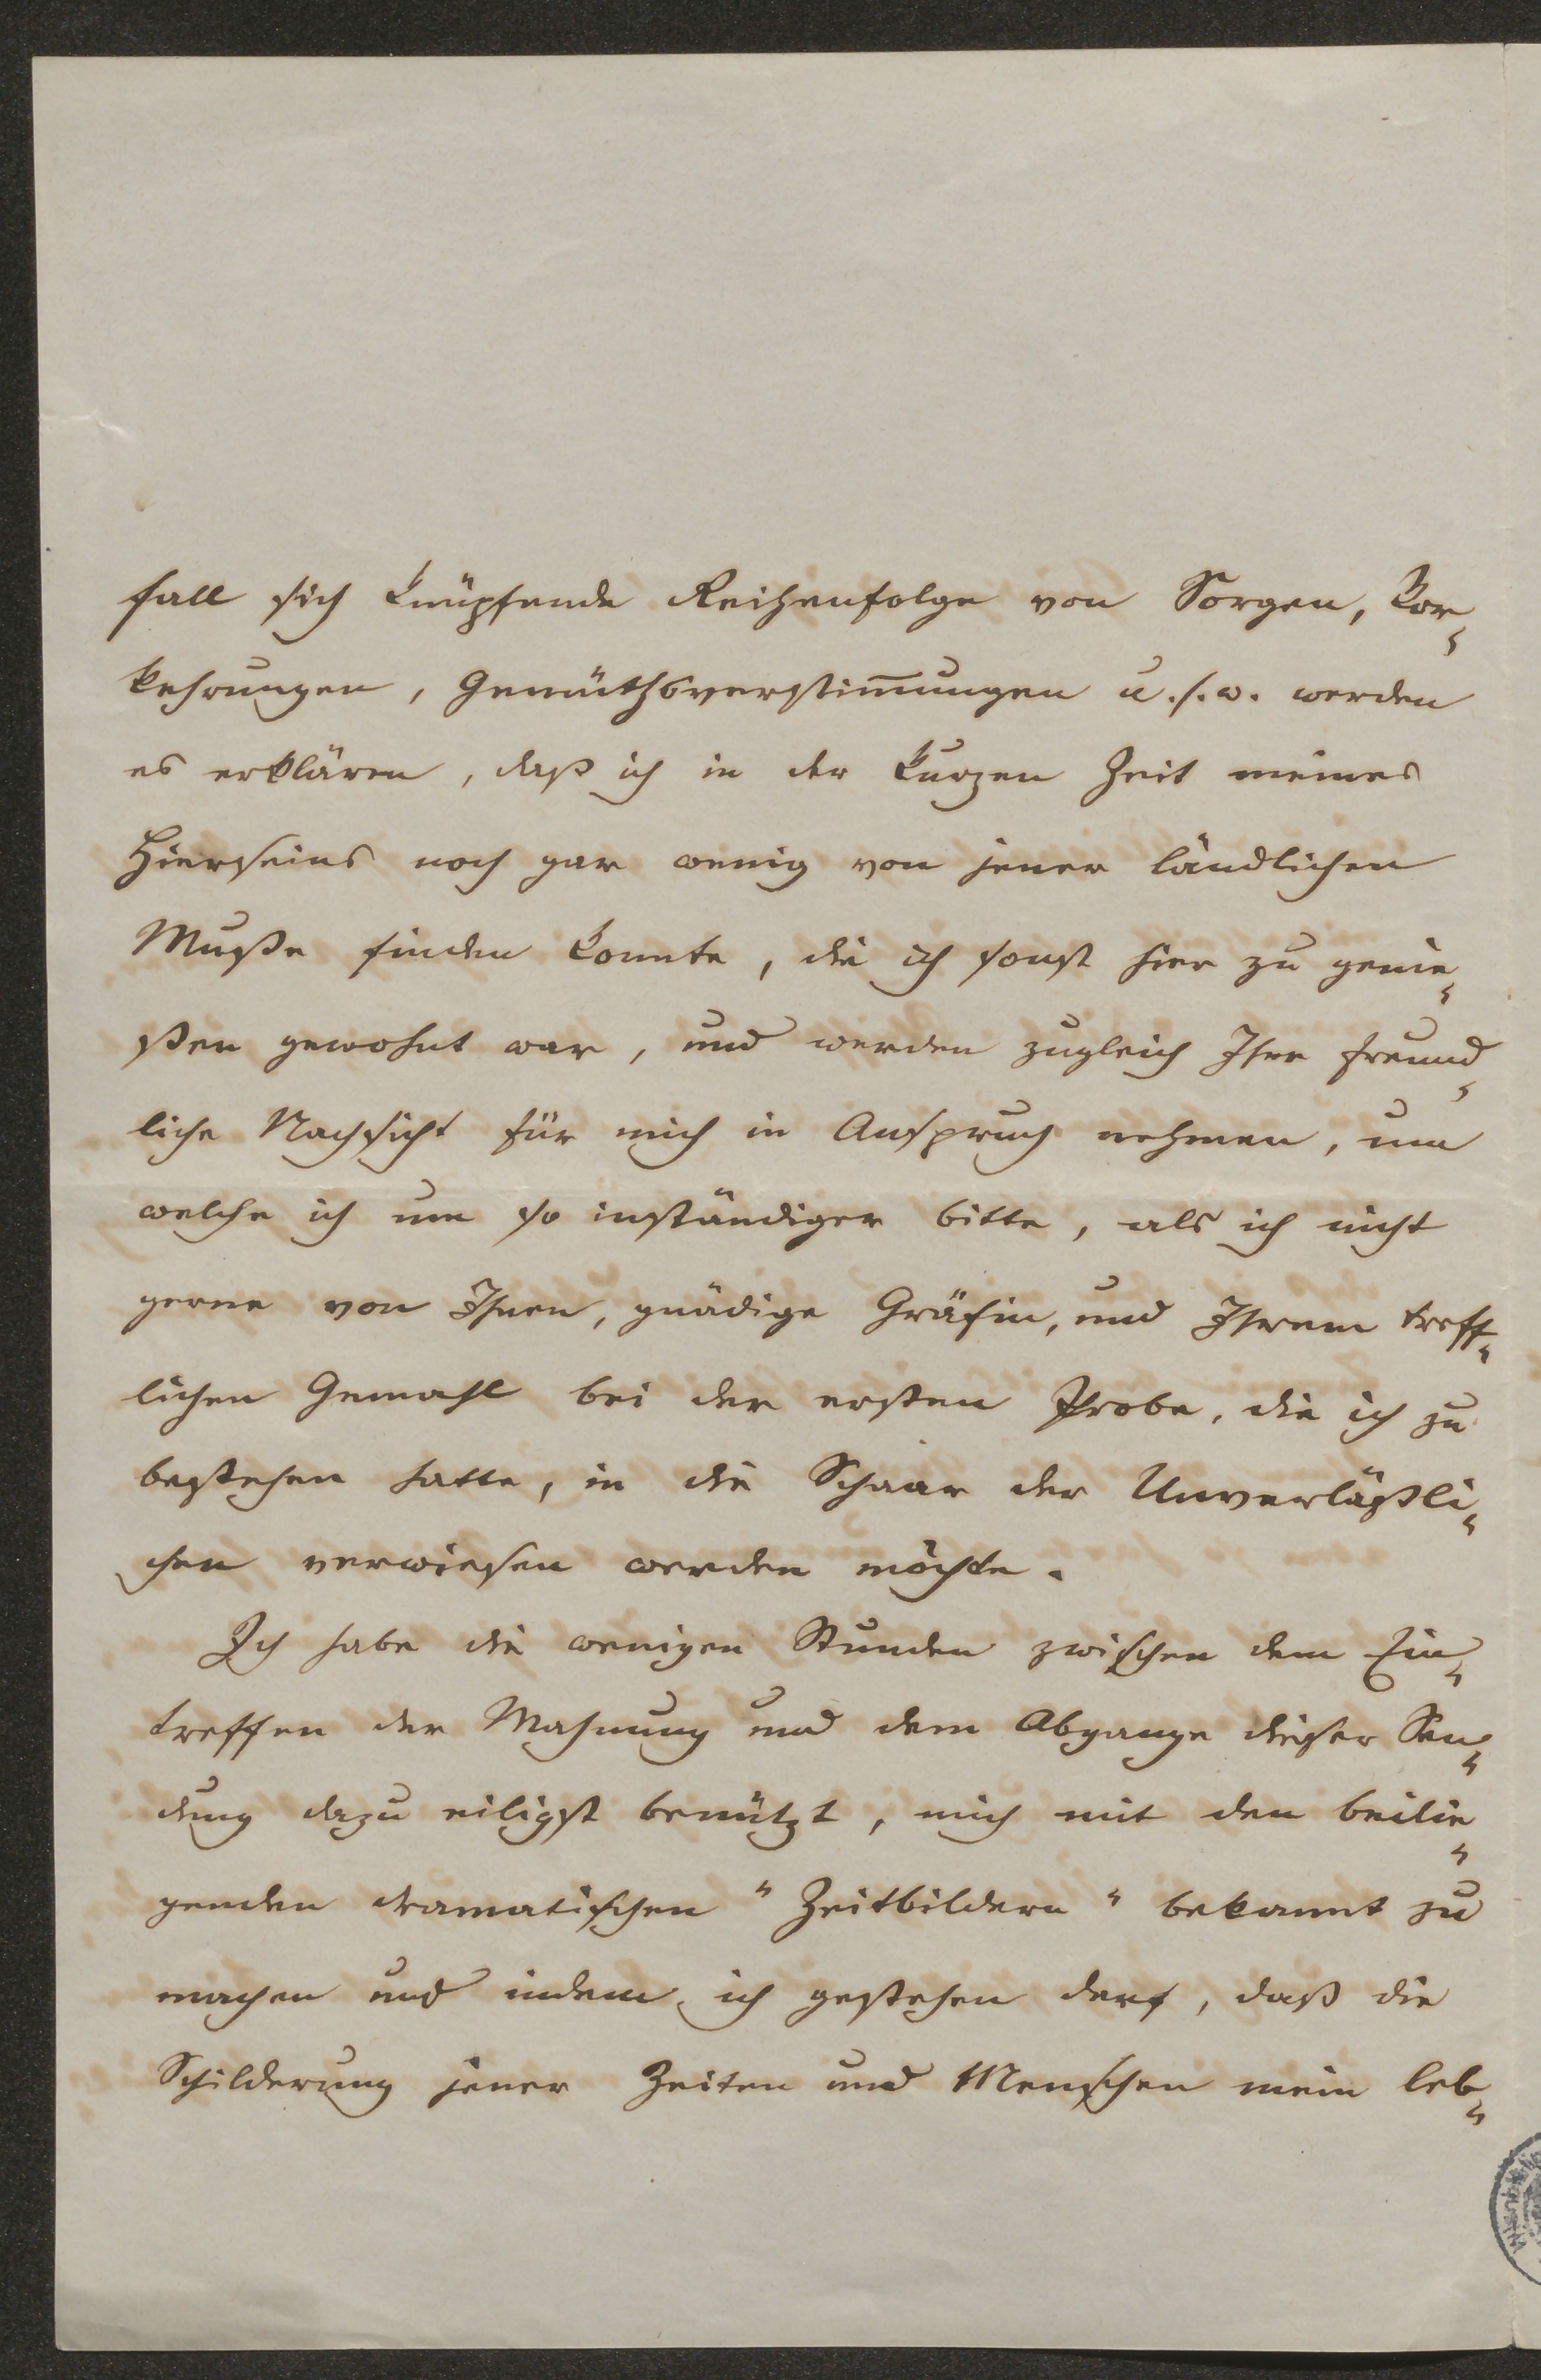 fall sich knüpfende Reihenfolge von Sorgen, Vor-
kehrungen, Gemüthsverstim̅ungen u.s.w. werden
es erklären, daß ich in der kurzen Zeit meines
Hierseins noch gar wenig von jener ländlichen
Muße finden konnte, die ich sonst hier zu genie-
ßen gewohnt war, und werden zugleich Ihre freund-
liche Nachsicht für mich in Anspruch nehmen, um
welche ich um so inständiger bitte, als ich nicht
gerne von Ihnen, gnädige Gräfin, und Ihrem treff-
lichen Gemahl bei der ersten Probe, die ich zu
bestehen hatte, in die Schaar der Unverläßli-
chen verwiesen werden möchte.
Ich habe die wenigen Stunden zwischen dem Ein-
treffen der Mahnung und dem Abgange dieser Sen-
dung dazu eiligst benützt, mich mit den beilie-
genden dramatischen "Zeitbildern" bekannt zu
machen und indem ich gestehen darf, daß die
Schilderung jener Zeiten und Menschen mein leb-